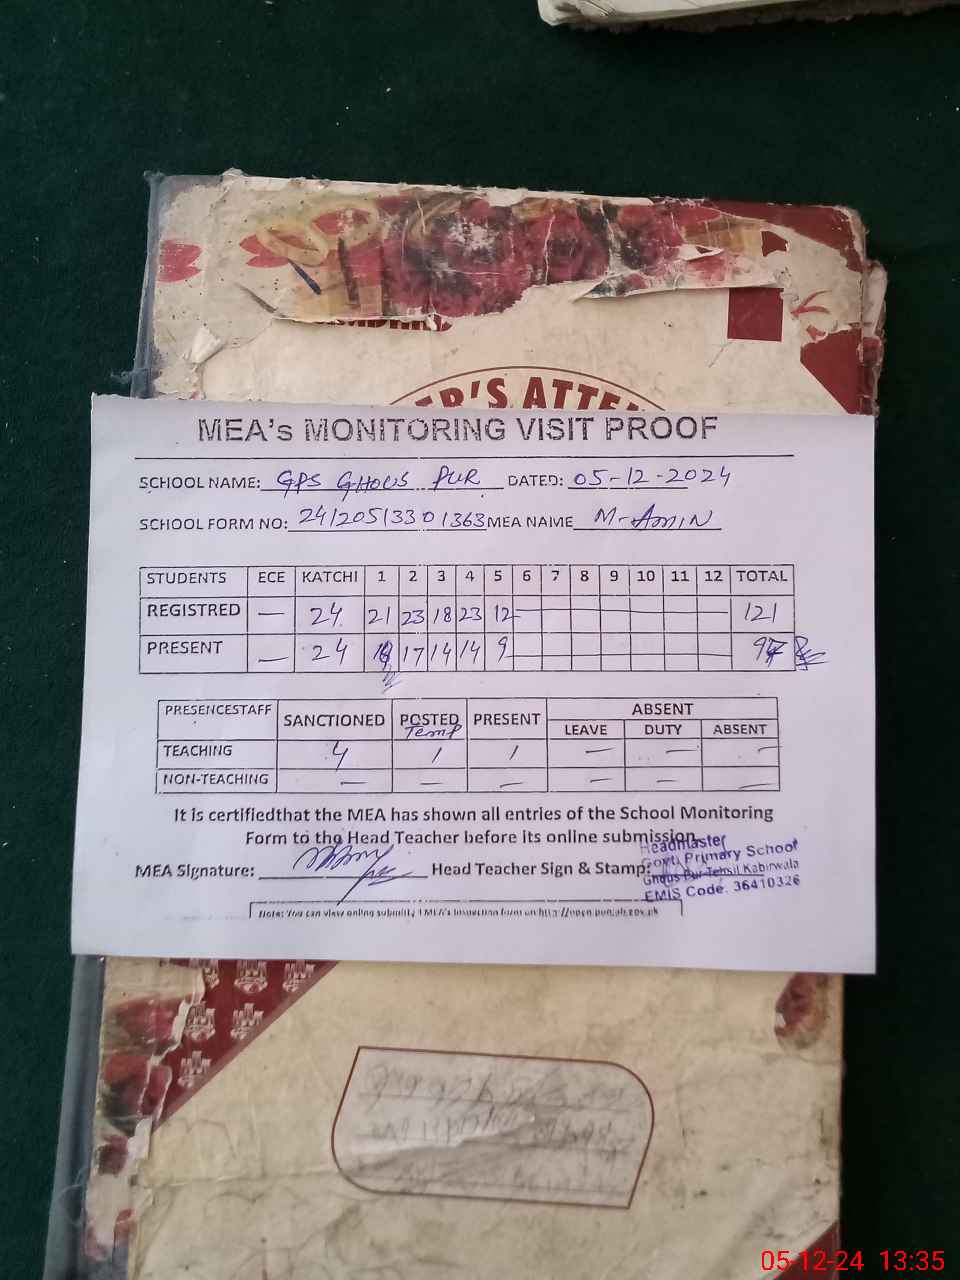 ER'S ATTE
MEA's MONITORING VISIT PROOF
SCHOOL NAME: GPS GHOUS PUR DATED: 05-12-2024
SCHOOL FORM NO: 24120513301363 MEA NAME M-AMIN
STUDENTS ECE KATCHI 1 2 3 4 5 6 7 8 9 10 11 12 TOTAL
REGISTRED — 24 21 23 18 23 12 121
PRESENT — 24 17 14 14 9
PRESENCESTAFF SANCTIONED POSTED PRESENT ABSENT
Temp LEAVE DUTY ABSENT
TEACHING 4 1 1 — — —
NON-TEACHING — — — — — —
It is certifiedthat the MEA has shown all entries of the School Monitoring
Form to the Head Teacher before its online submission.
MEA Signature: Head Teacher Sign & Stamp:
Headmaster
Govt. Primary School
Ghous Pur Tehsil Kabirwala
EMIS Code. 36410326
Note: You can view online submitted MEA's inspection form on http://open.punjab.gov.pk
05-12-24 13:35